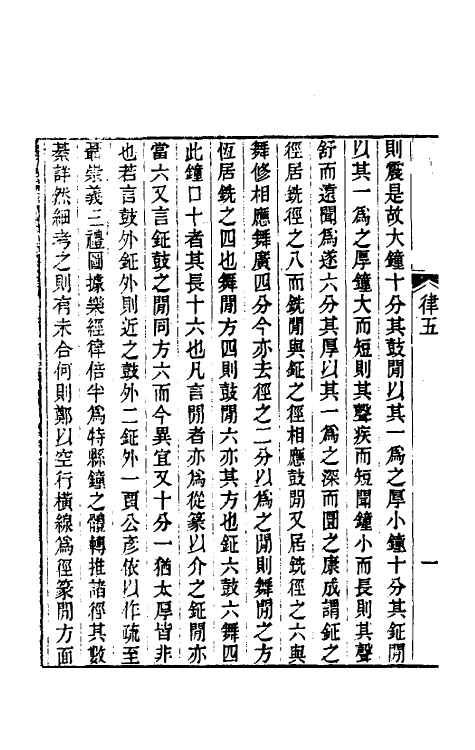 律五
一
則震是故大鐘十分其鼓閒以其一爲之厚小鐘十分其鉦閒
以其一爲之厚鐘大而短則其聲疾而短聞鐘小而長則其聲
舒而遠聞爲遂六分其厚以其一爲之深而圜之康成謂鉦之
徑居銑徑之八而銑閒與鉦之徑相應鼓閒又居銑徑之六與
舞修相應舞廣四分今亦去徑之二分以爲之閒則舞閒之方
恆居銑之四也舞閒方四則鼓閒六亦其方也鉦六鼓六舞四
此鐘口十者其長十六也凡言閒者亦爲從篆以介之鉦閒亦
當六又言鉦鼓之閒同方六而今異宜又十分一猶太厚皆非
也若言鼓外鉦外則近之鼓外二鉦外一賈公彥依以作疏至
聶崇義三禮圖據樂經律倍半爲特縣鐘之體轉推諸徑其數
綦詳然細考之則有未合何則鄭以空行橫線爲徑篆閒方面